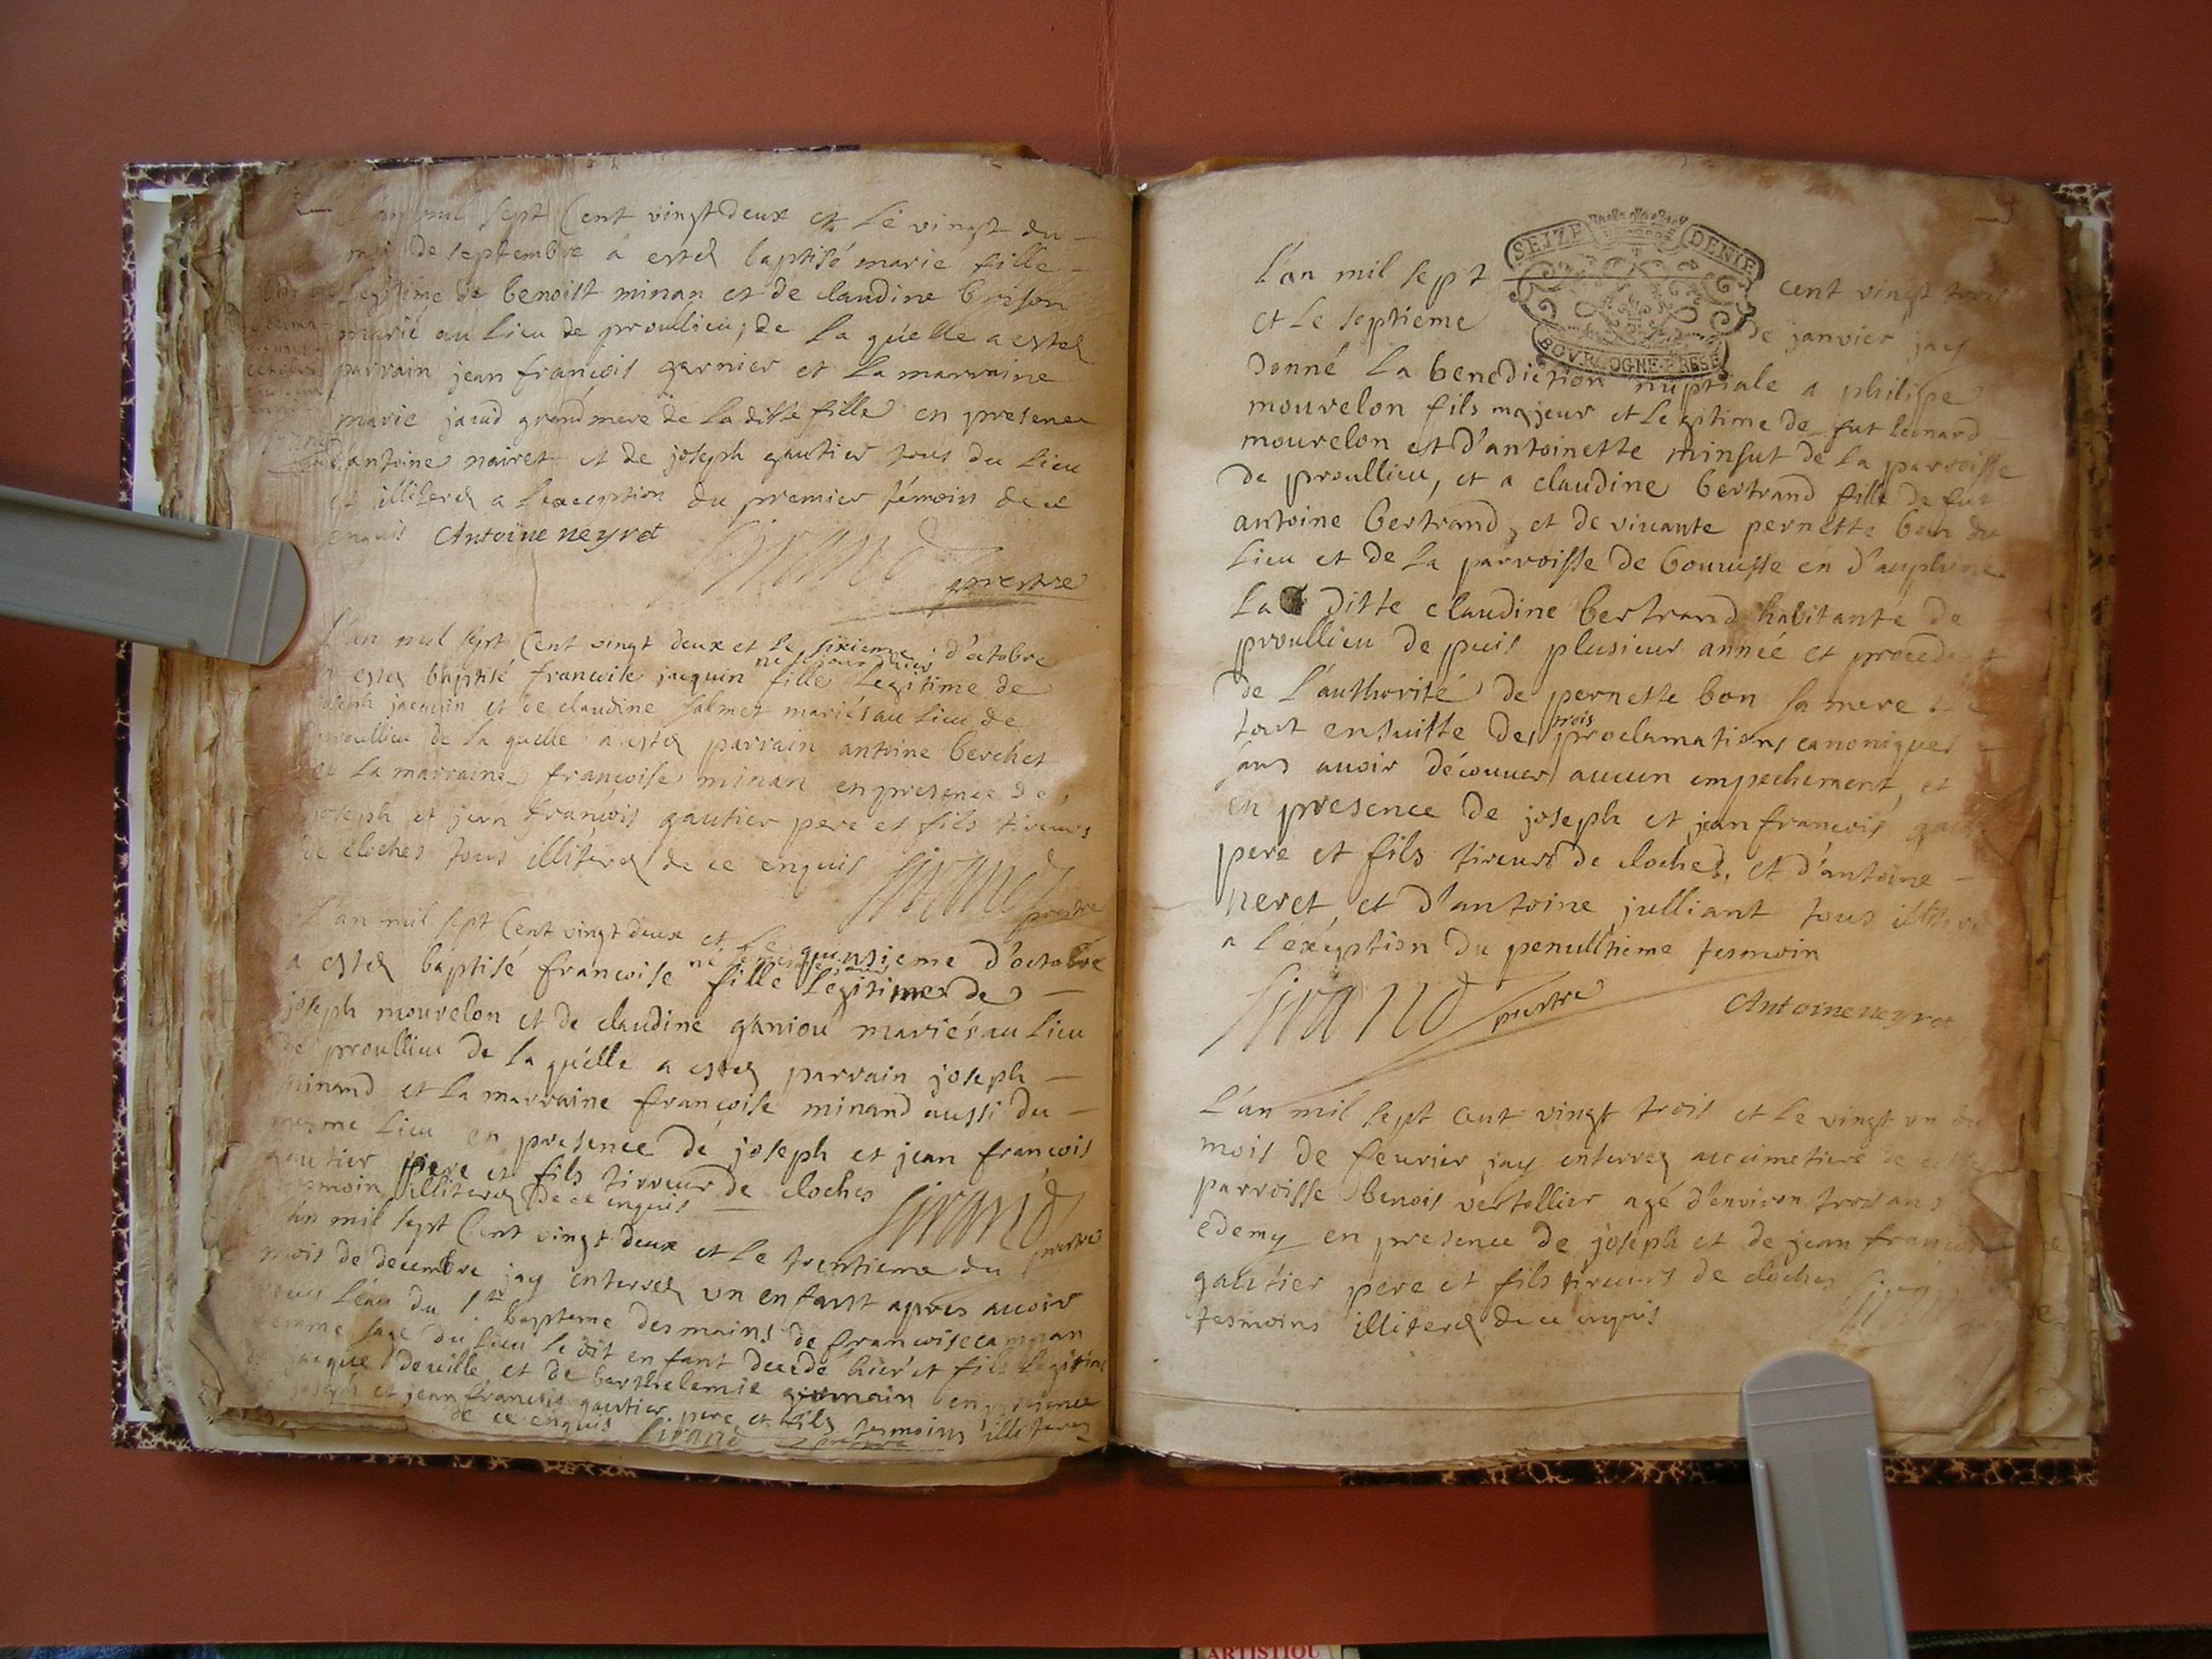 L'an mil sept Cent vingt deux et le vingt du
de septembre a esteé baptisé marie fille
legitime de benoist minan et de claudine brison
marié au lieu de proullieu, de la quelle a esteé
parrain jean françois garnier et la marraine
marie jacud grand mere de la ditte fille en presence
d'antoine nairet et de joseph gautier tous du lieu
et illitereé a l'exception du premier témoin de ce
enquis Antoine neyret
Sirand
prestre
L'an mil sept Cent vingt deux et le sixieme d'octobre
né le jour d'hier
a esteé baptisé francoise jacquin fille legitime de
joseph jacquin et de claudine salmet mariés au lieu de
proullieu de la quelle a esteé parrain antoine berchet
et la marraine françoise minan en presence de
joseph et jean françois gautier pere et fils tireurs
de cloches tous illitereé de ce enquis
Sirand
prestre
L'an mil sept Cent vingt deux et le quinsieme d'octobre
a esteé baptisé francoise fille legitime de
joseph mourelon et de claudine ganiou mariés au lieu
de proullieu de la quélle a esteé parrain joseph
minand et la marraine françoise minand aussi du
mesme lieu en presence de joseph et jean françois
gautier pere et fils tirreur de cloches
tesmoin illitereé de ce enquis
Sirand
prestre
L'an mil sept Cent vingt deux et le trentieme du
mois de decembre jay enterreé un enfant apres auoir
receu l'eau du St bapteme des mains de francoise campan
femme sage du lieu le dit enfant decedé hièr et fils legitime
de jacque deville et de barthelemie germain en presence
de joseph et jean francois gautier pere et fils tesmoins illitereé
de ce enquis Sirand prestre
SEIZE DENIE
BOVRGOGNE·BRESSE
L'an mil sept cent vingt trois
et le septieme de janvier jay
donné la benediction nuptiale a philipe
mourelon fils majeur et legitime de fut leonard
mourelon est d'antoinette minsut de la parroisse
de proullieu, et a claudine bertrand fille de fut
antoine bertrand, et de viuante pernette bon du
lieu et de la parroisse de bouuesse en d'auphiné
la ditte claudine bertrand habitante de
proullieu de puis plusieur année et procedant
de l'authorité de pernette bon sa mere
trois
tout ensuitte des proclamations canoniques
sans auoir découuer aucun empechement, et
en presence de joseph et jean francois
pere et fils tireurs de cloches, et d'antoine
neret, et d'antoine julliant tous
a l'exéption du penultieme tesmoin
Sirand prestre
Antoine neyret
L'an mil sept cent vingt trois et le vingt un du
mois de feurier jay enterreé au cimetiere de
parroisse benois vertollier agé d'environ trois ans
edemy en presence de joseph et de jean francois
gautier pere et fils tireurs de cloches
tesmoins illitereé de ce enquis